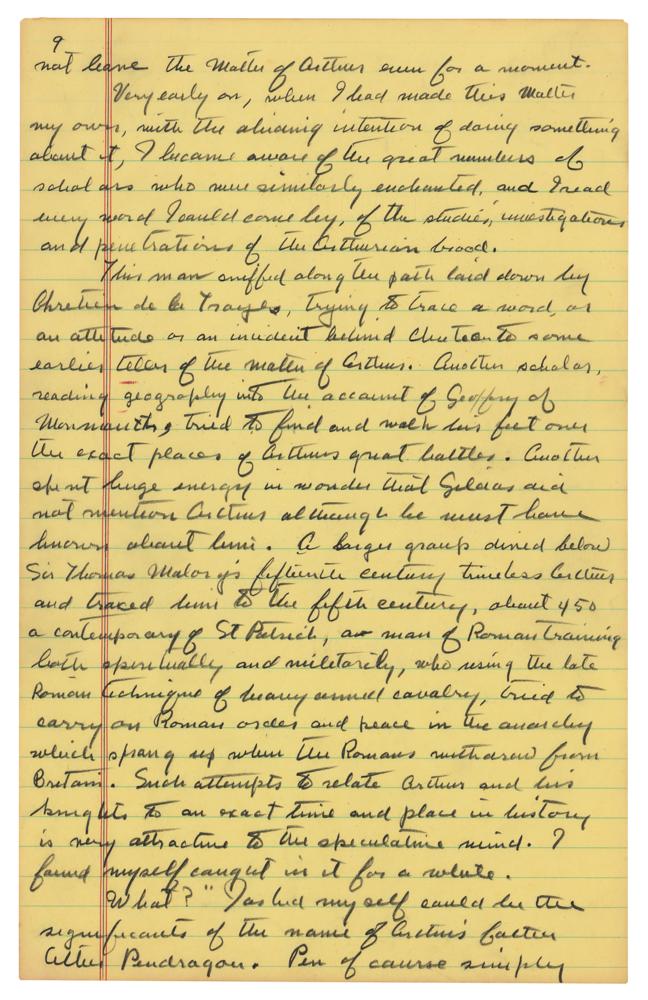 9
not leave the Matter of Arthur even for a moment.
Very early on, when I had made this Matter
my own, with the abiding intention of doing something
about it, I became aware of the great numbers of
scholars who were similarly enchanted, and I read
every word I could come by, of the studies, investigations
and penetrations of the Arthurian brood.
This man sniffed along the path laid down by
Chretien de la Troyes, trying to trace a word, or
an attitude or an incident behind Chretien to some
earlier teller of the matter of Arthur. Another scholar,
reading geography into the account of Geoffry of
Monmauth, tried to find and walk his feet over
the exact places of Arthurs great battles. Another
spent huge energy in wonder that Gildas did
not mention Arthur although he must have
known about him. A larger group dived below
Sir Thomas Malory's fifteenth century timeless Arthur
and traced him to the fifth century, about 450
a contemporary of St Patrick, a man of Roman training
both spiritually and militarily, who using the late
Roman technique of heavy armed cavalry, tried to
carry on Roman order and peace in the anarchy
which sprang up when the Romans withdrew from
Britain. Such attempts to relate Arthur and his
knights to an exact time and place in history
is very attractive to the speculative mind. I
found myself caught in it for a while.
What?" I asked myself could be the
significants of the name of Arthur's father
Uther Pendragon. Pen of course simply